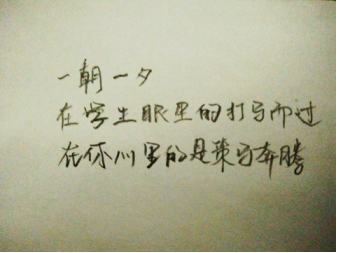 一朝一夕
在学生眼里的打马而过
在你心里的是策马奔腾